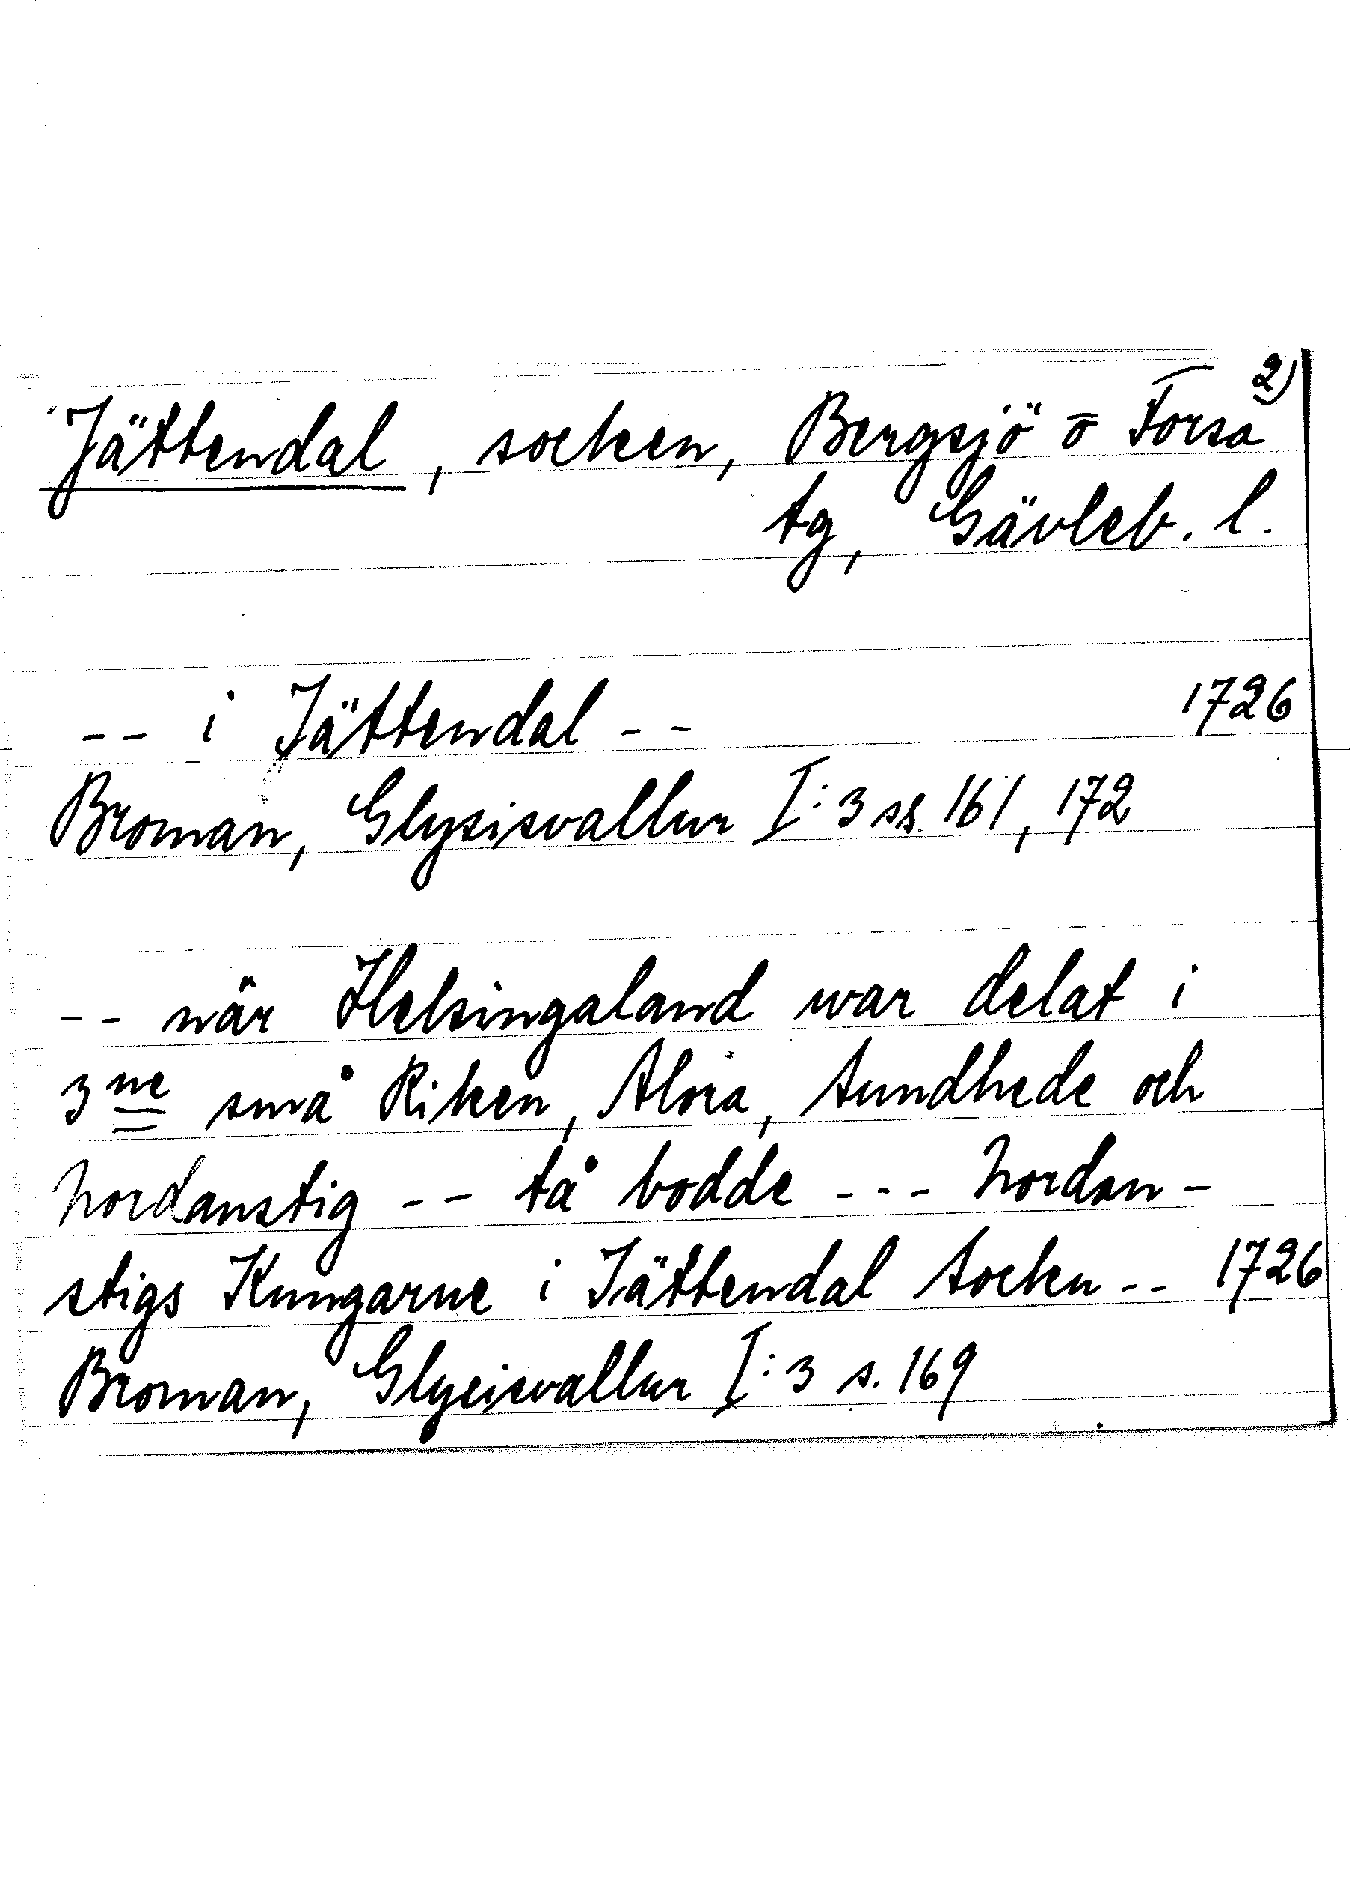 2)
Jättendal, socken, Bergsjö o Forsa
tg, Gävleb. l.
-- i Jättendal -- 1726
Broman, Glysisvallur I:3 ss. 161, 172
-- när Helsingaland war delat i
3ne små Riken, Alora, Sundhede och
Nordanstig -- få bodde --- Nordan-
stigs Kungarne i Jättendal Socken -- 1726
Broman, Glysisvallur I:3 s. 169